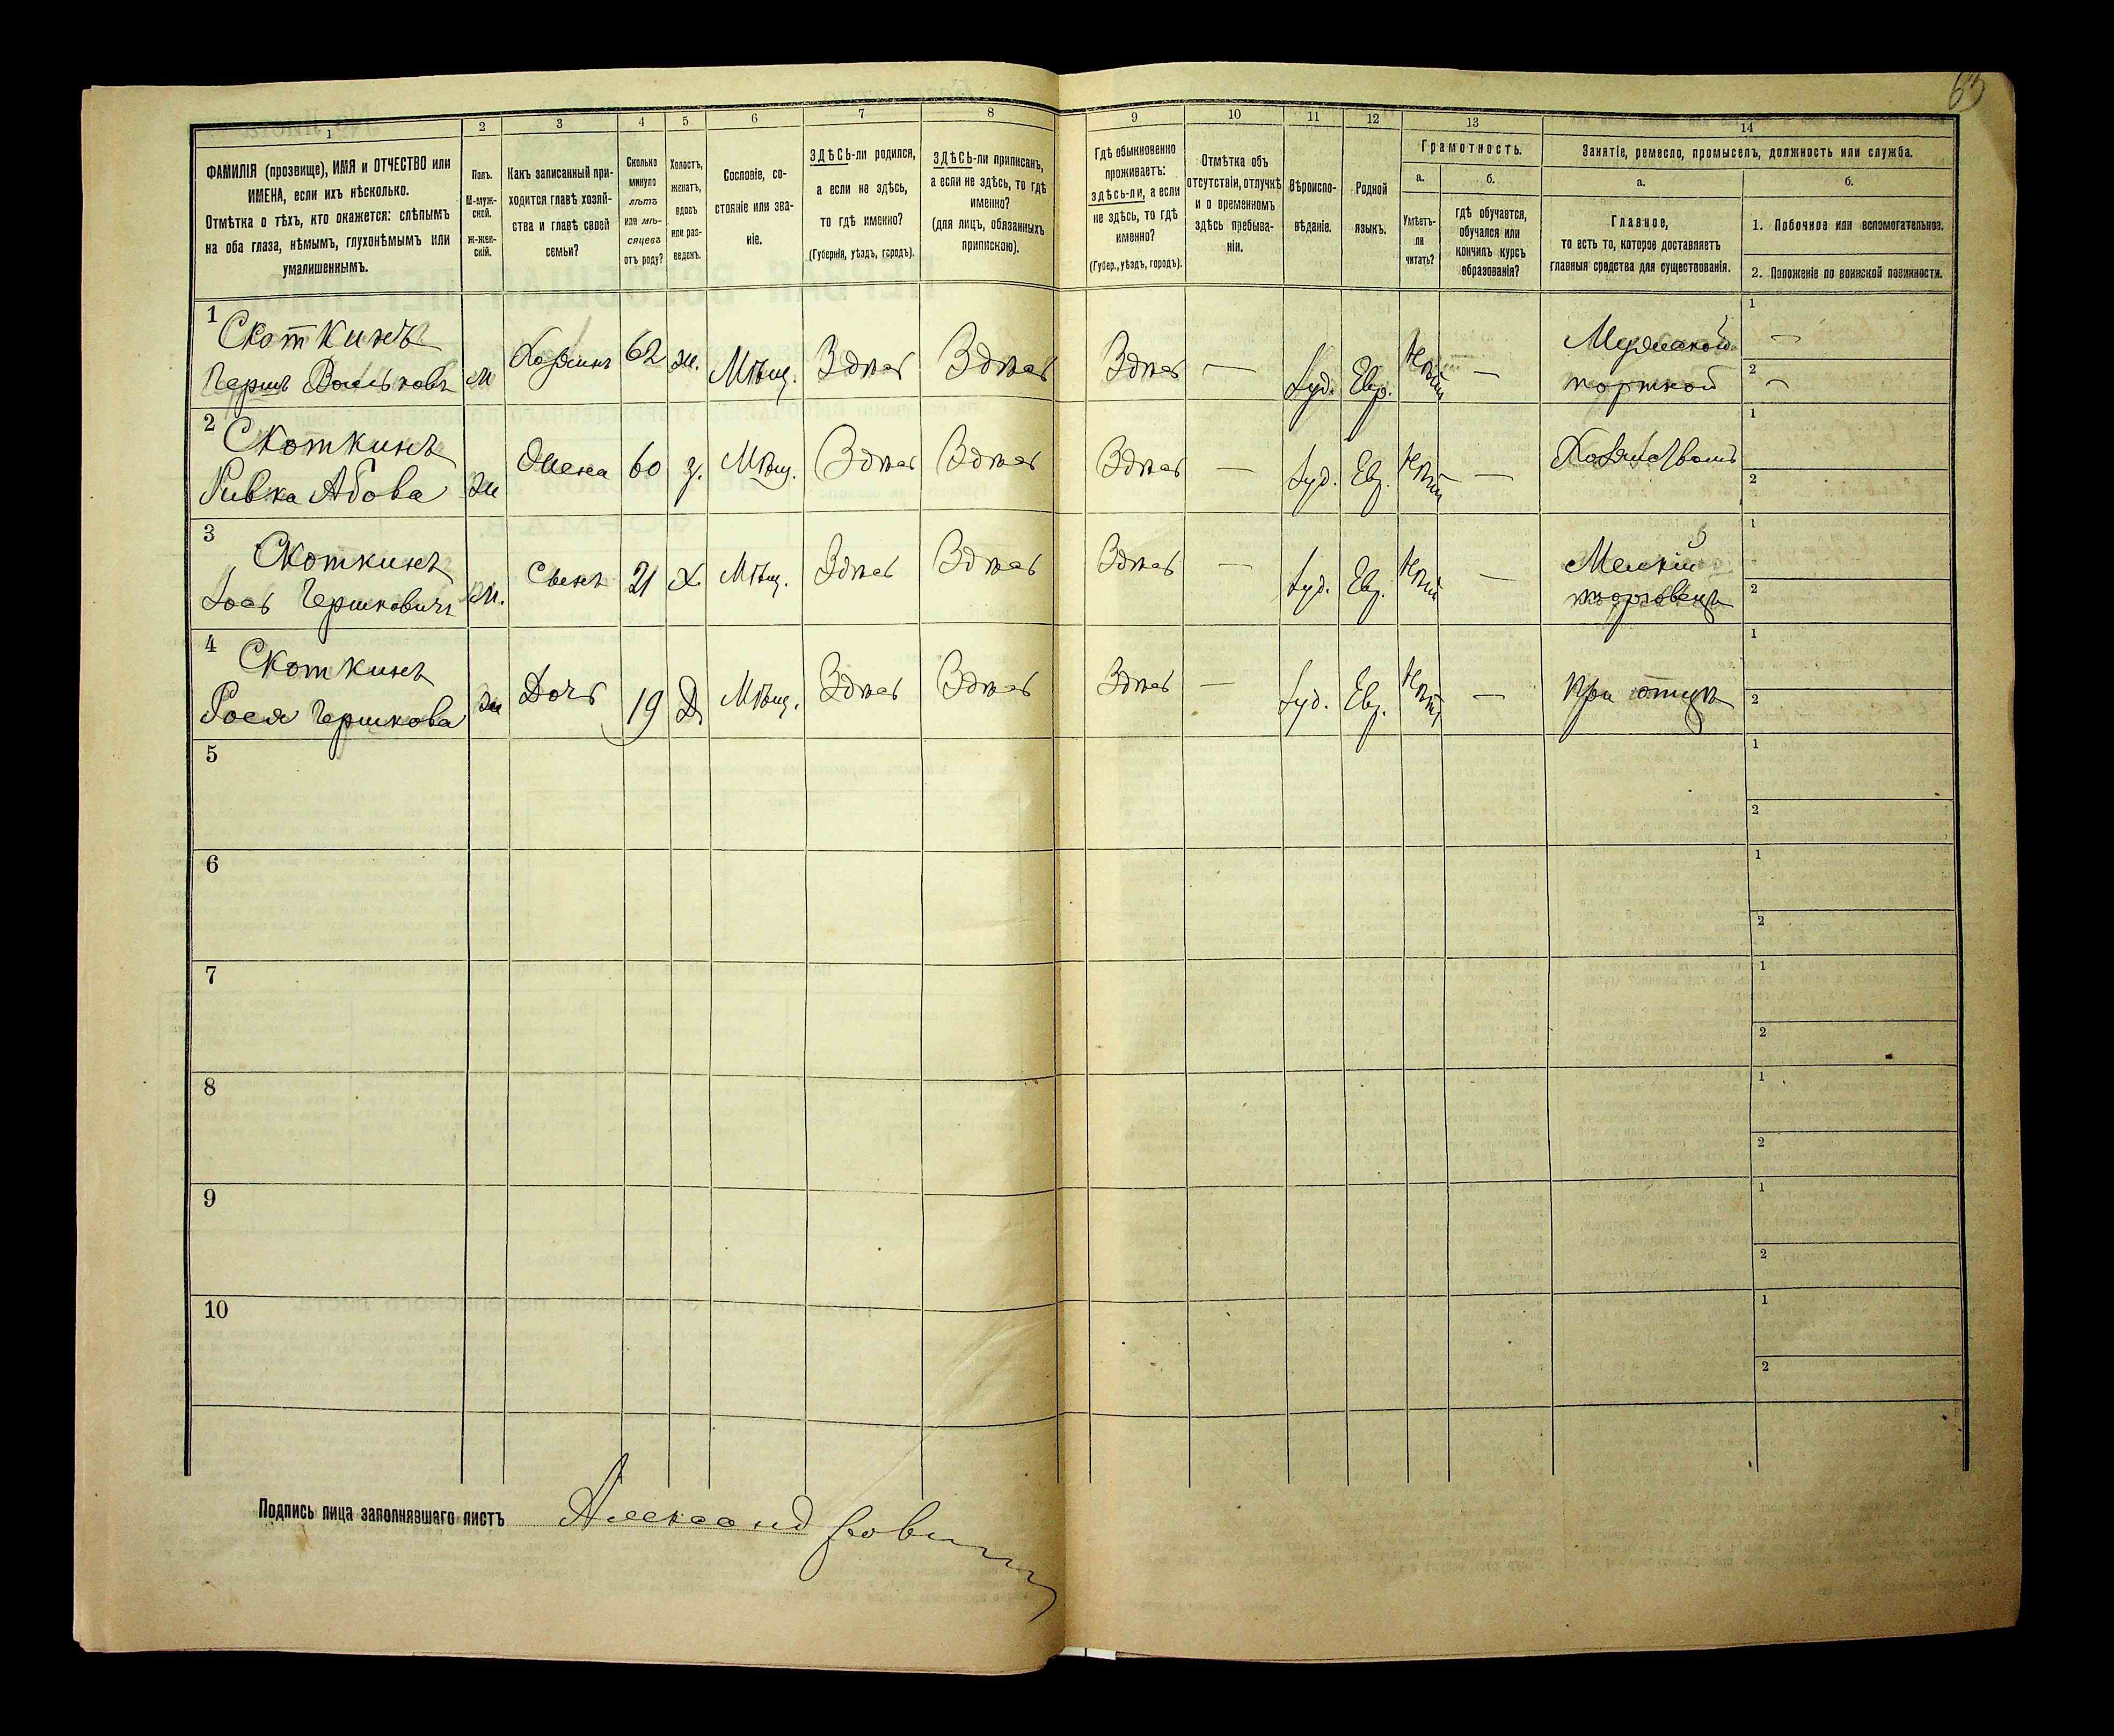 65
1
2
3
4
5
6
7
8
9
10
11
12
13
14
ФАМИЛІЯ (прозвище), ИМЯ и ОТЧЕСТВО или
ИМЕНА, если ихъ нѣсколько.
Отмѣтка о тѣхъ, кто окажется: слѣпымъ
на оба глаза, нѣмымъ, глухонѣмымъ или
умалишеннымъ.
Полъ.
М-муж-
ской.
Ж-жен-
скій.
Какъ записанный при-
ходится главѣ хозяй-
ства и главѣ своей
семьи?
Сколько
минуло
лѣтъ
или мѣ-
сяцевъ
отъ роду?
Холостъ,
женатъ,
вдовъ
или раз-
веденъ.
Сословіе, со-
стояніе или зва-
ніе.
ЗДѢСЬ-ли родился,
а если не здѣсь,
то гдѣ именно?
(Губернія, уѣздъ, городъ).
ЗДѢСЬ-ли приписанъ,
а если не здѣсь, то гдѣ
именно?
(для лицъ, обязанныхъ
припискою).
Гдѣ обыкновенно
проживаетъ:
здѣсь-ли, а если
не здѣсь, то гдѣ
именно?
(Губер., уѣздъ, городъ).
Отмѣтка объ
отсутствіи, отлучкѣ
и о временномъ
здѣсь пребыва-
ніи.
Вѣроиспо-
вѣданіе.
Родной
языкъ.
Грамотность.
а.
Умѣетъ-
ли
читать?
б.
гдѣ обучается,
обучался или
кончилъ курсъ
образованія?
Занятіе, ремесло, промыселъ, должность или служба.
а.
Главное,
то есть то, которое доставляетъ
главныя средства для существованія.
б.
1. Побочное или вспомогательное.
2. Положеніе по воинской повинности.
1
Скоткинъ
Гершъ Вольковъ м Хозяинъ 62 ж. Мѣщ. Здѣсь Здѣсь Здѣсь — Іуд. Евр. Нѣтъ —
Мужской
портной
1 —
2 —
2
Скоткинъ
Ривка Абова ж Жена 60 з. Мѣщ. Здѣсь Здѣсь Здѣсь — Іуд. Евр. Нѣтъ —
1
2
3
Скоткинъ
Іосъ Гершковичъ м. Сынъ 21 х. Мѣщ. Здѣсь Здѣсь Здѣсь — Іуд. Евр. Нѣтъ —
Мелкій
торговецъ
1
2
4
Скоткинъ
Рося Гершкова ж Дочь 19 Д Мѣщ. Здѣсь Здѣсь Здѣсь — Іуд. Евр. Нѣтъ — При отцѣ
1
2
5
1
2
6
1
2
7
1
2
8
1
2
9
1
2
10
1
2
Подпись лица заполнявшаго листъ Александрович